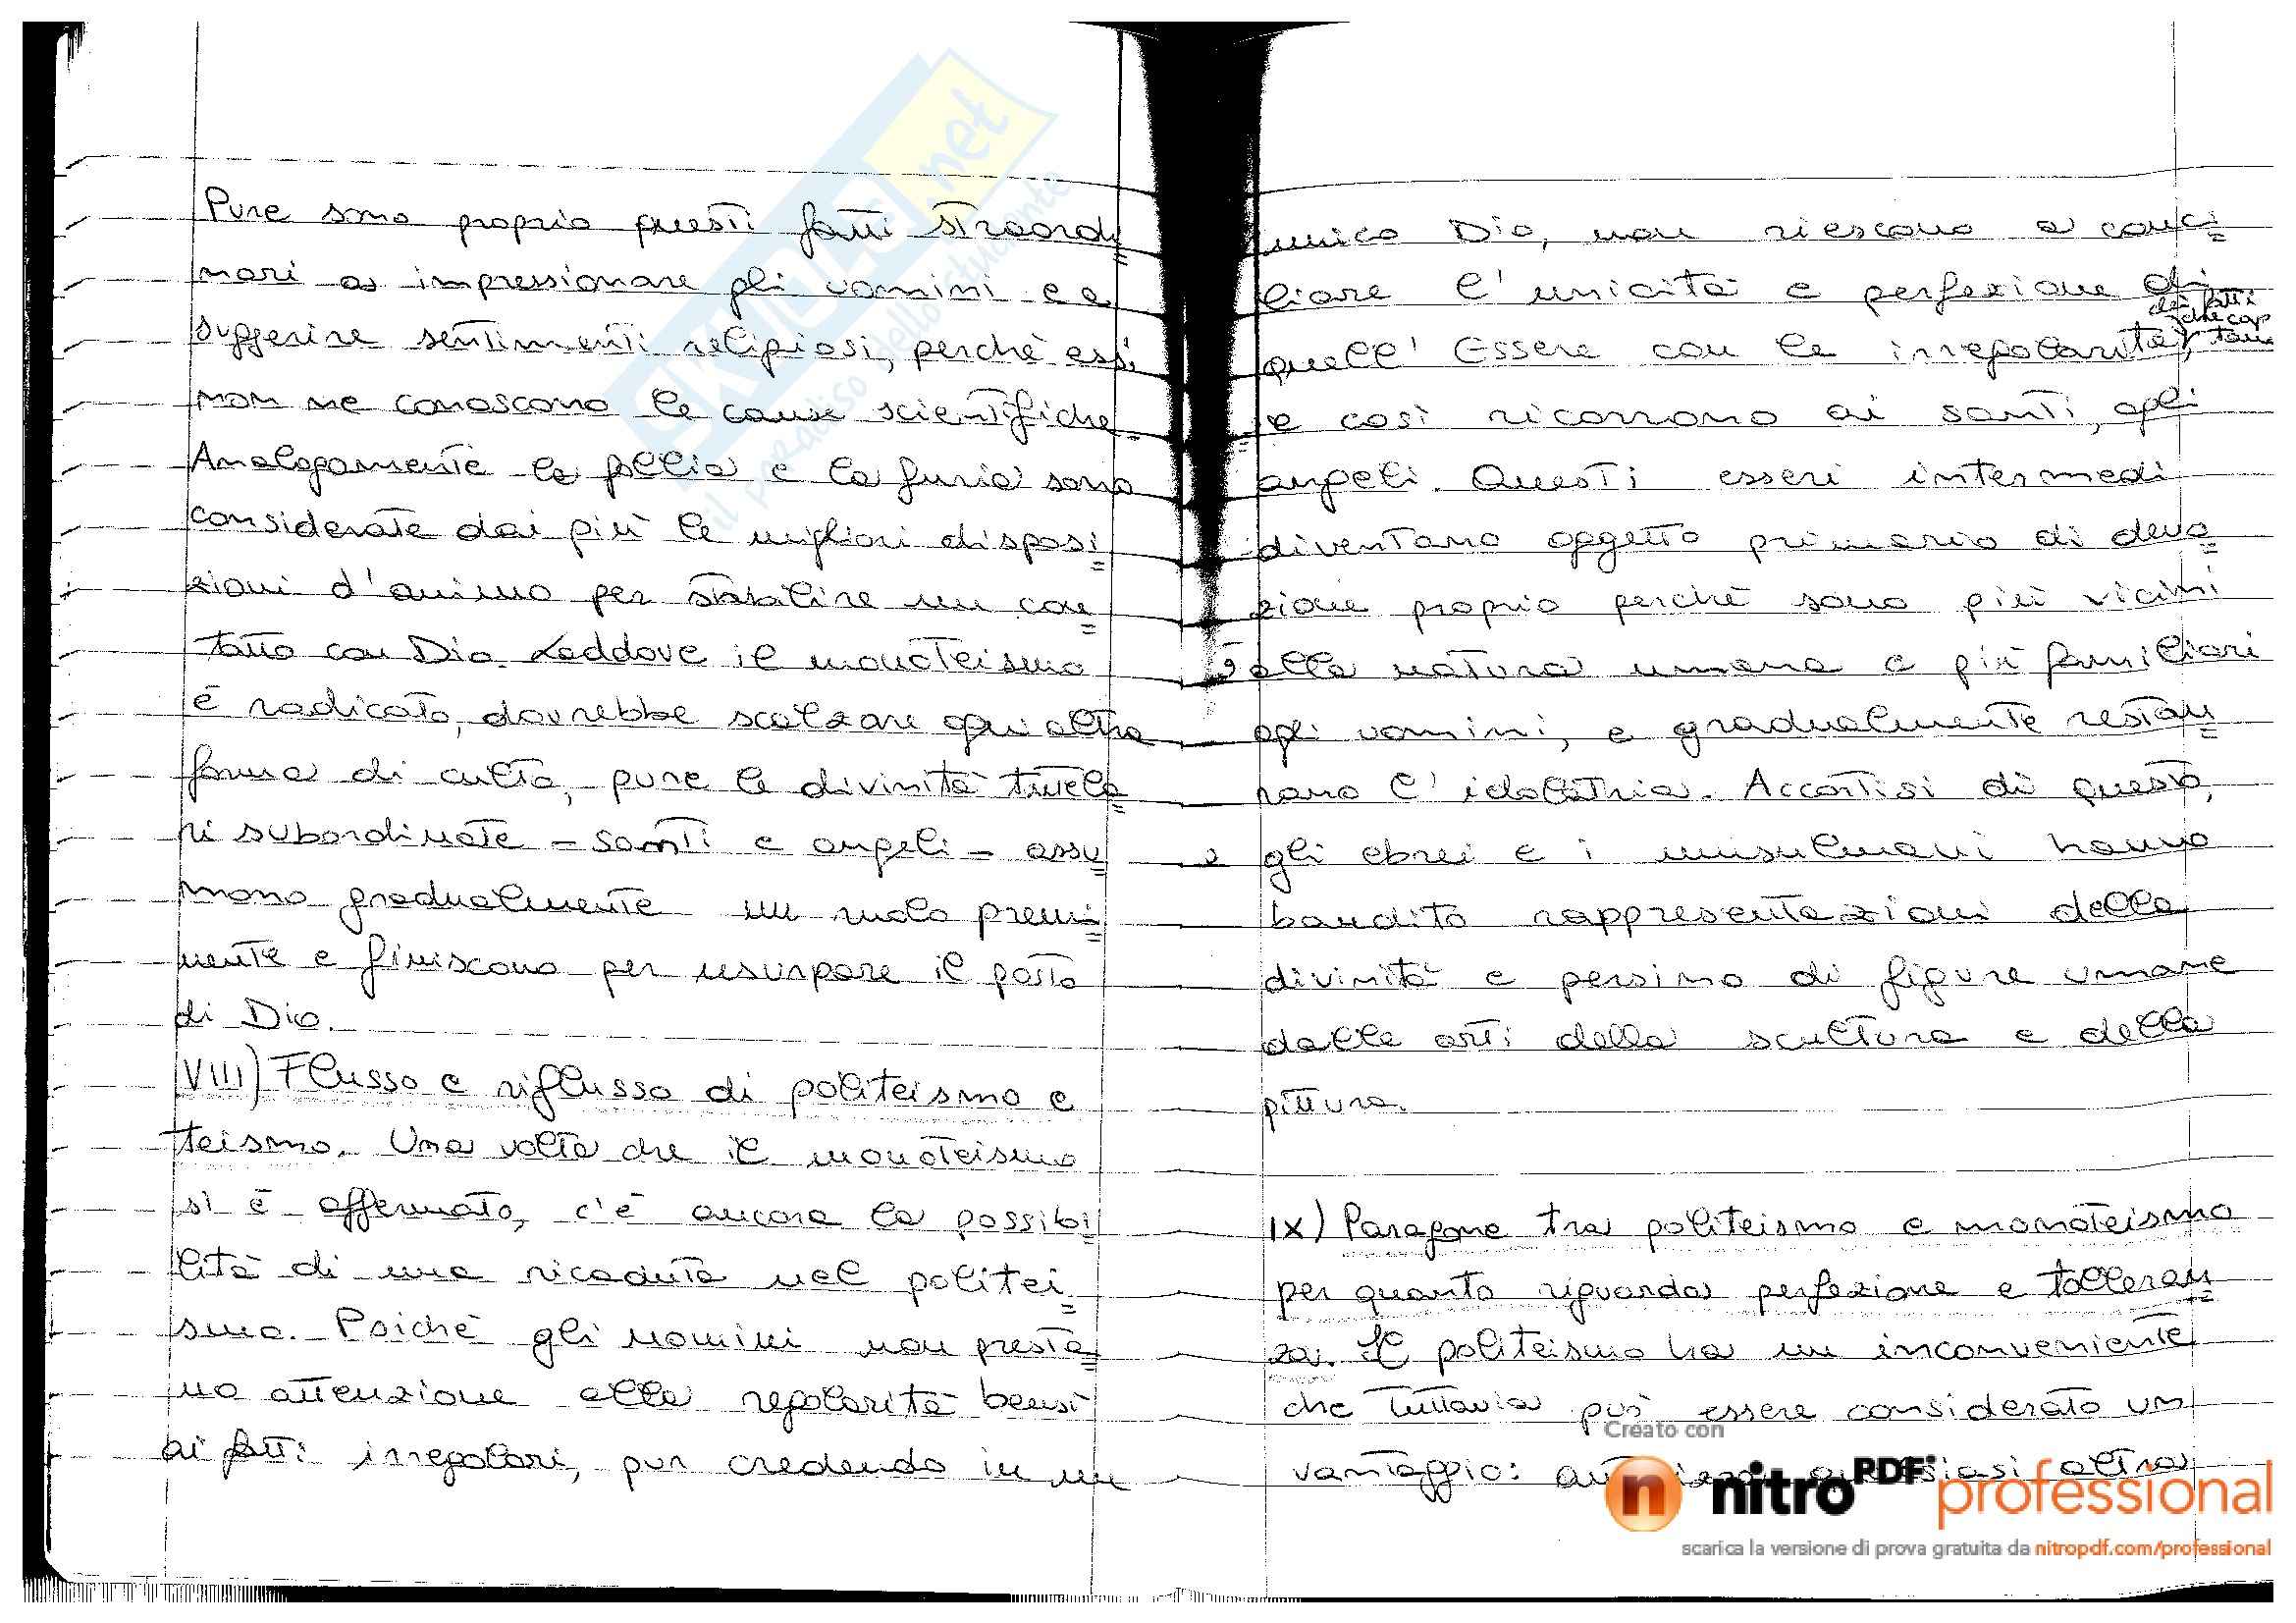 Pure sono proprio questi fatti straordi=
nari a impressionare gli uomini e a
suggerire sentimenti religiosi, perchè essi
non ne conoscono le cause scientifiche.
Analogamente la follia e la furia sono
considerate dai più le migliori disposi=
zioni d'animo per stabilire un con=
tatto con Dio. Laddove il monoteismo
è radicato, dovrebbe scalzare ogni altra
forma di culto, pure le divinità tutela=
ri subordinate - santi e angeli - assu=
mono gradualmente un ruolo premi=
nente e finiscono per usurpare il posto
di Dio.
VIII) Flusso e riflusso di politeismo e
teismo. Una volta che il monoteismo
si è affermato, c'è ancora la possibi=
lità di una ricaduta nel politei=
smo. Poichè gli uomini non presta=
no attenzione alla regolarità bensì
ai fatti irregolari, pur credendo in un
unico Dio, non riescono a conci=
liare l'unicità e perfezione di
quell'Essere con le irregolarità,
dei fatti
che cap
tano
e così ricorrono ai santi, agli
angeli. Questi esseri intermedi
diventano oggetto primario di devo=
zione proprio perchè sono più vicini
alla natura umana e più familiari
agli uomini, e gradualmente restau=
rano l'idolatria. Accortisi di questo,
gli ebrei e i musulmani hanno
bandito rappresentazioni della
divinità e persino di figure umane
dalle arti della scultura e della
pittura.
IX) Paragone tra politeismo e monoteismo
per quanto riguarda perfezione e tolleran=
za. Il politeismo ha un inconveniente
che tuttavia può essere considerato un
vantaggio: altra
SKUOLA.net
il paradiso dello studente
Creato con
nitro PDF professional
scarica la versione di prova gratuita da nitropdf.com/professional